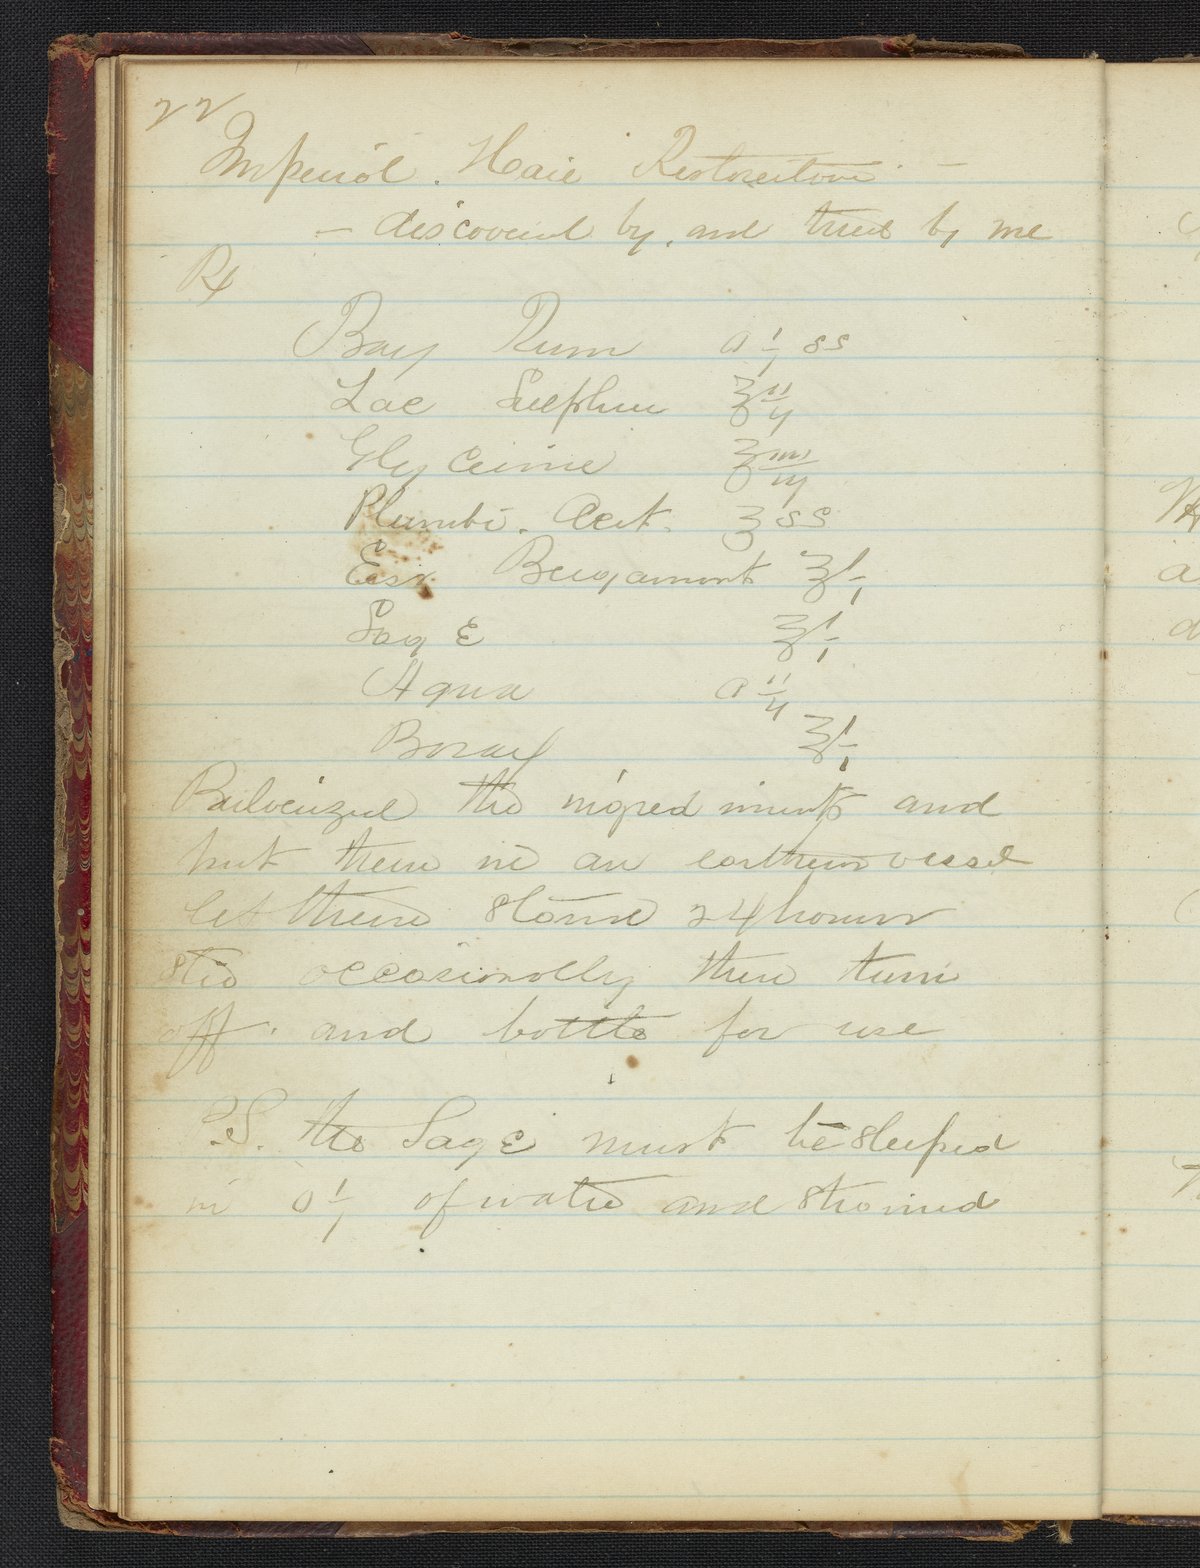 22
Imperial Hair Restorative —
— discovered by, and tried by me
℞
Bay Rum O i ss
Lac Sulphur ℥ ij
Glycerine ℥
Plumbi. Acet. ℥ ss
Ess. Bergamont ℥ i
Sage ℥ i
Aqua O ij
Borax ℥ i
the ingrediments and
put them in an earthern vessel
let them stand 24 hours
stir occasionally then turn
off. and bottle for use
P.S. the Sage must be steeped
in O i of water and strained